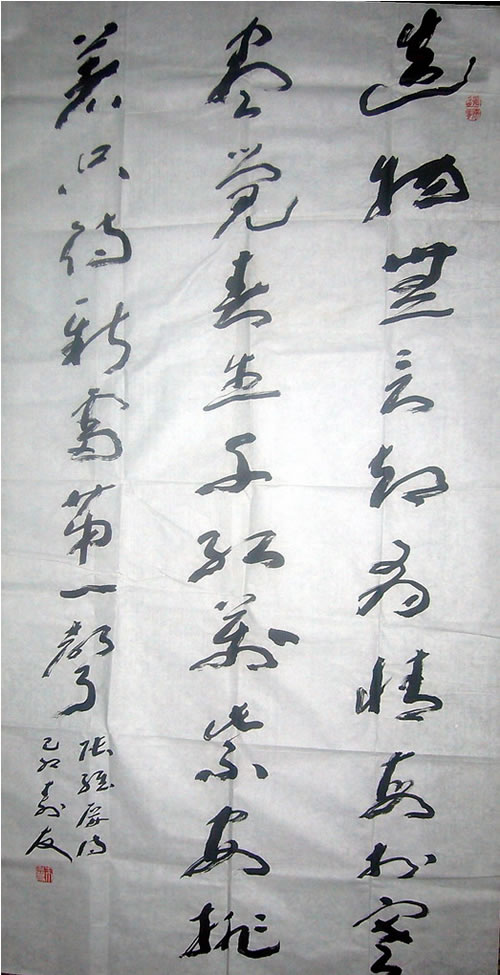 造物無言却有情每於寒
盡覺春生千紅萬紫安排
著只待新雷第一聲
張維屏詩
己卯友